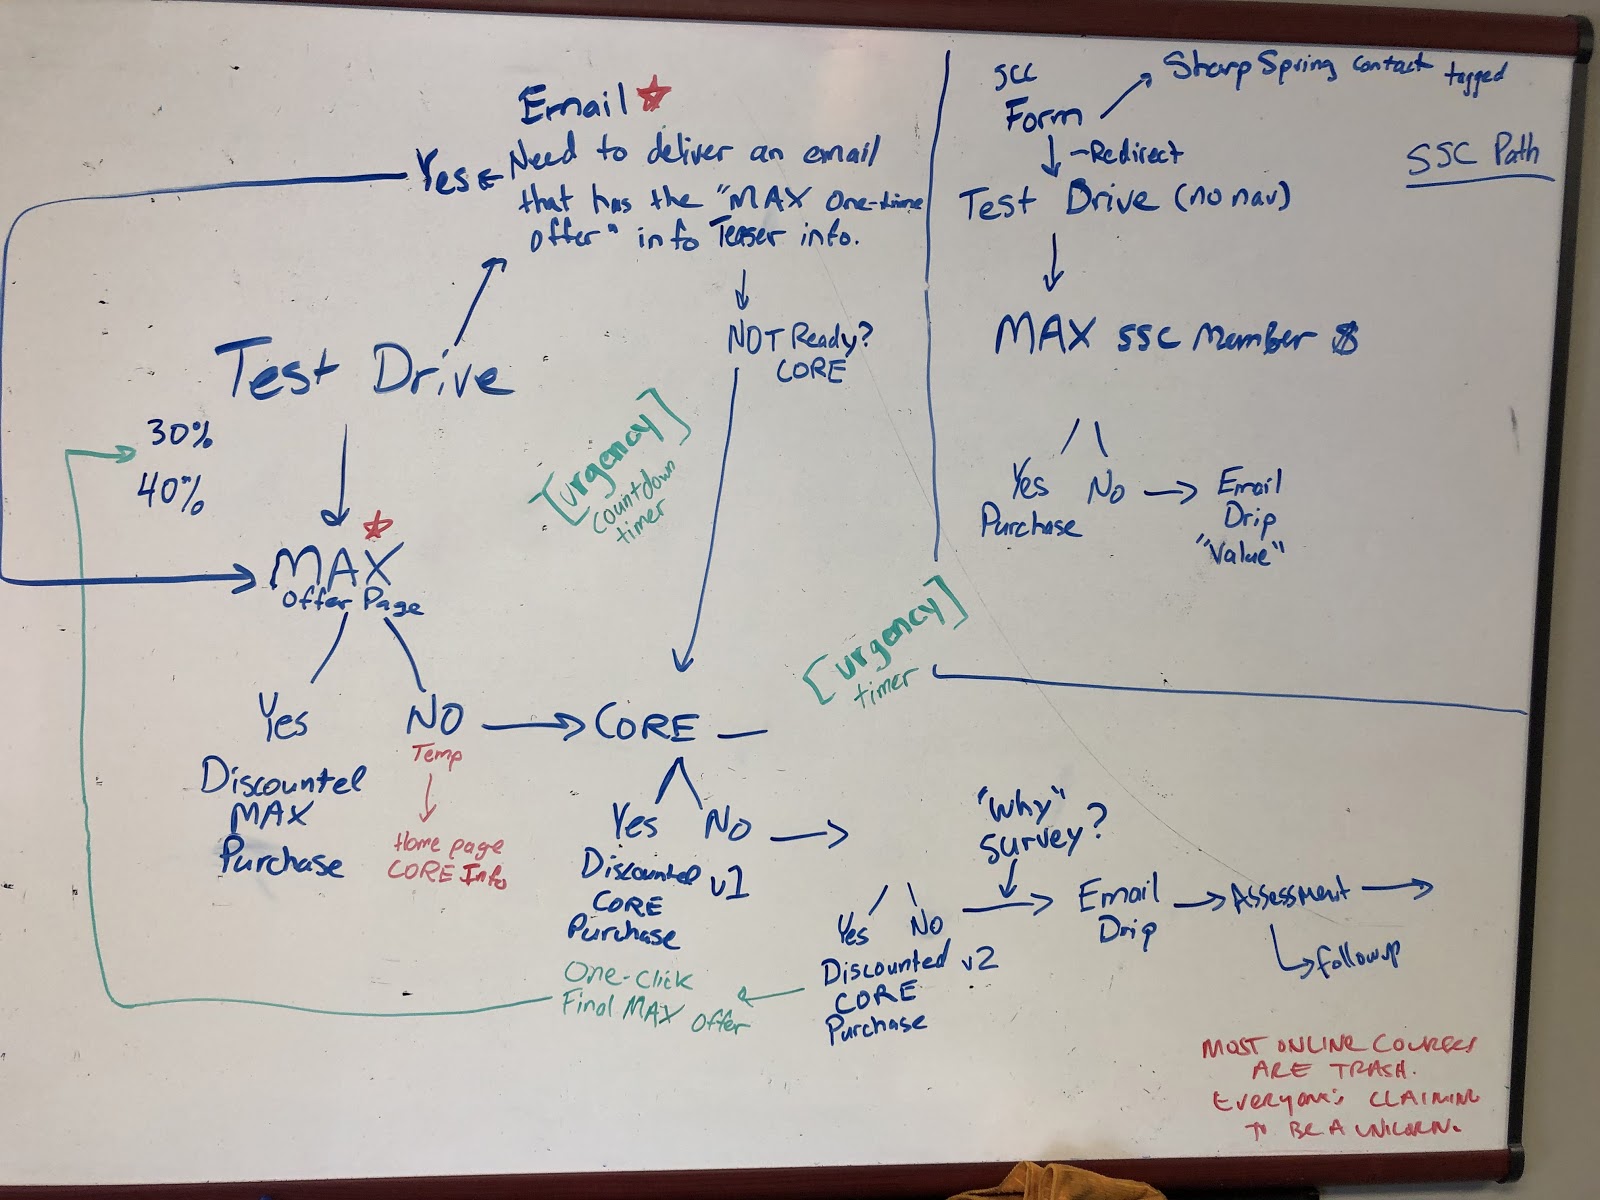 Email
Yes
Need to deliver an email
that has the "MAX one-time
offer" info Teaser info.
NOT Ready?
CORE
Test Drive
30%
40%
[urgency]
countdown
timer
MAX
Offer Page
Yes
Discounted
MAX
Purchase
NO
Temp
Home page
CORE Info
CORE
Yes
No
Discounted v1
CORE
Purchase
One-click
Final MAX offer
[urgency]
timer
Yes
No
Discounted v2
CORE
Purchase
"Why"
Survey?
Email
Drip
Assessment
followup
Form
SharpSpring contact tagged
-Redirect
SSC Path
Test Drive (no nav)
MAX SSC Member $
Yes
Purchase
No
Email
Drip
"Value"
MOST ONLINE COURSES
ARE TRASH.
EVERYONE'S CLAIMING
TO BE A UNICORN.